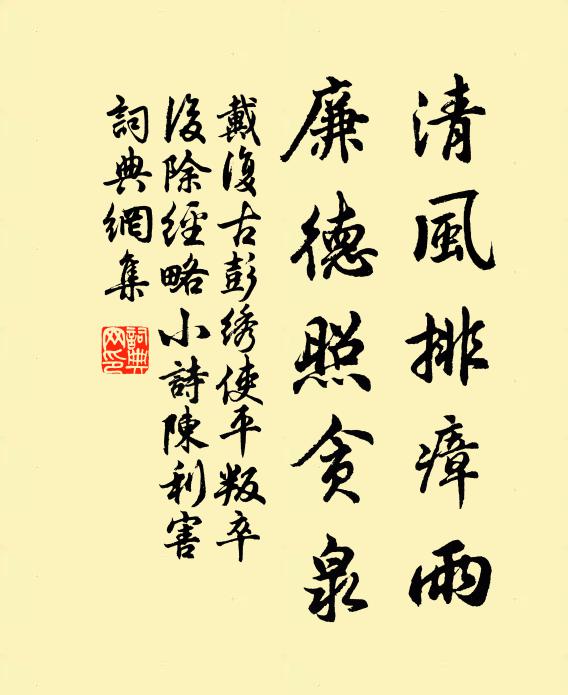 清風排瘴雨
廉德照貪泉
戴復古彭綉使平叛卒
後除經略小詩陳利害
詞典網集
詞典
网印